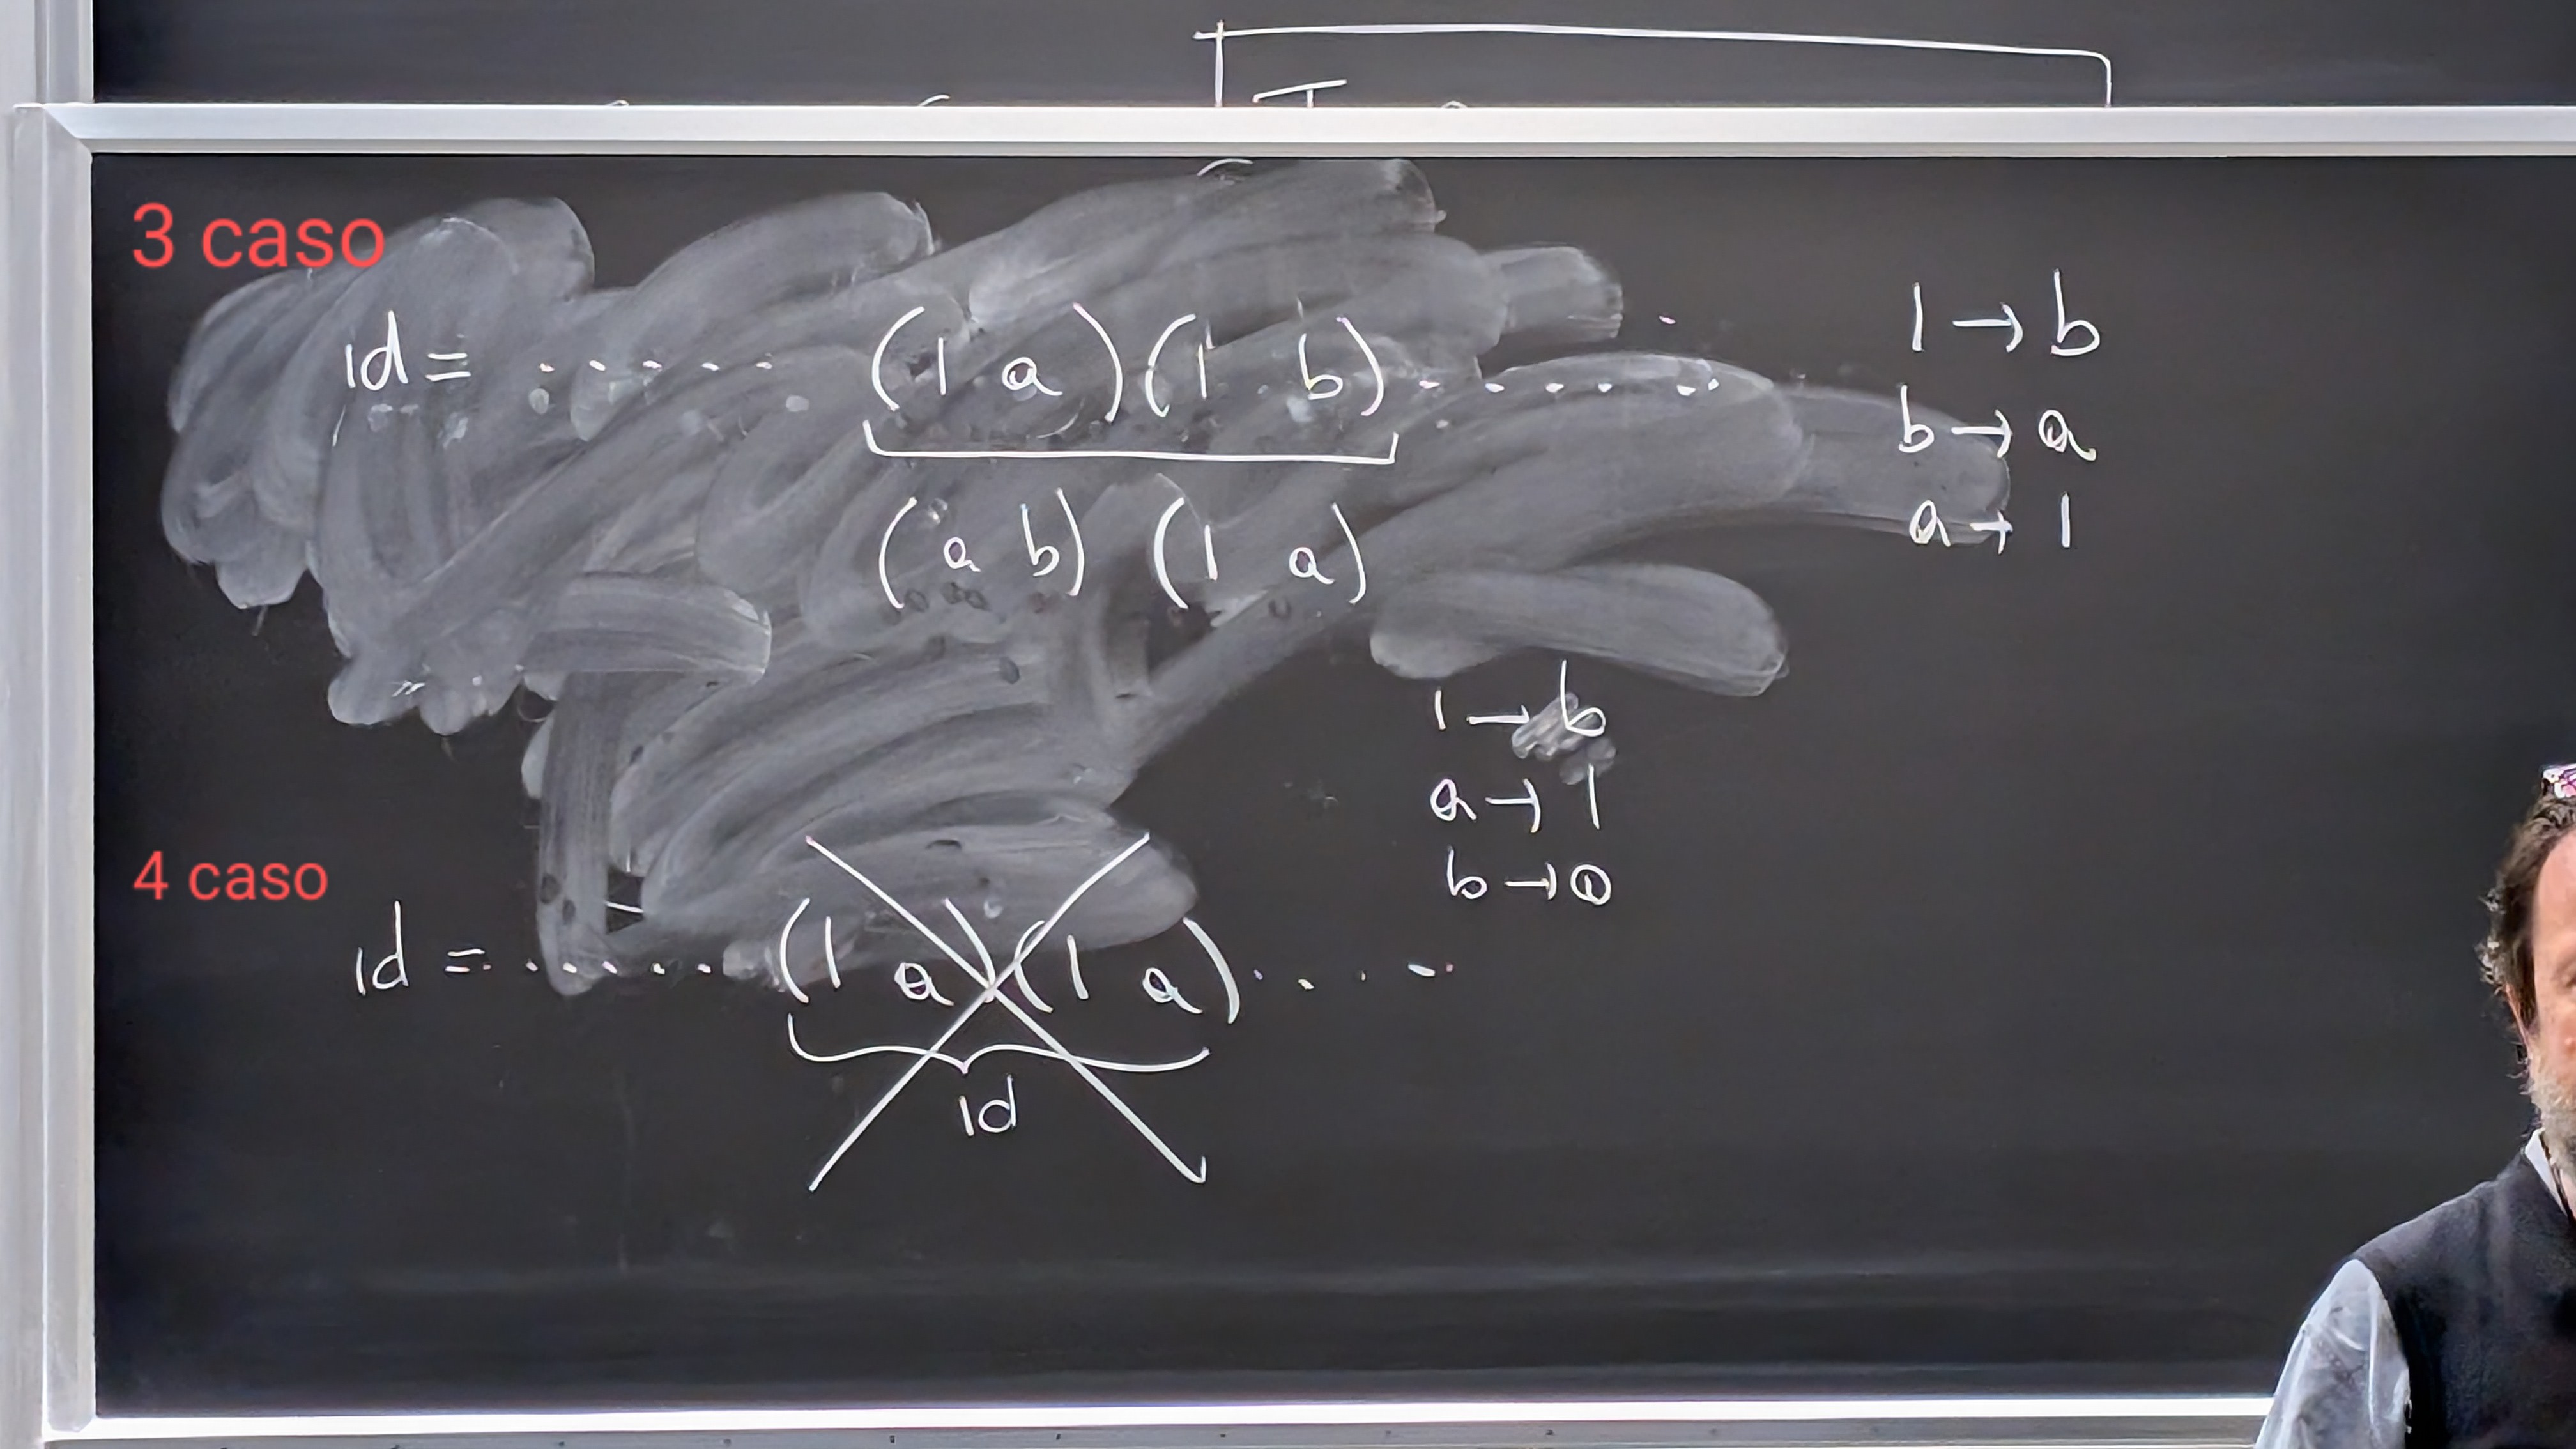 3 caso
id = . . . . . (1 a)(1 b) . . . . .
(a b) (1 a)
1 → b
b → a
a → 1
1 → b
a → 1
b → a
4 caso
id = . . . . . . (1 a)(1 a) . . . .
id